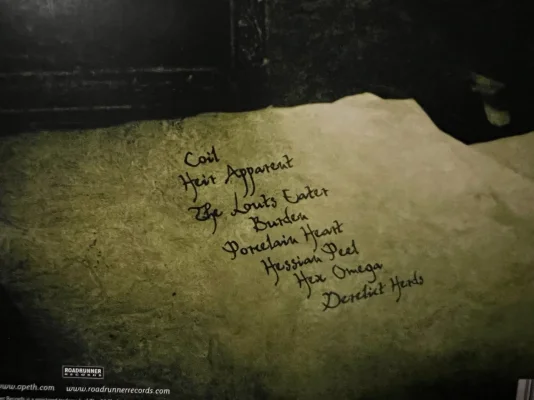 Coil
Heir Apparent
The Louts Eater
Burden
Porcelain Heart
Hessian Peel
Hex Omega
Derelict Herds
ROADRUNNER
RECORDS
www.opeth.com www.roadrunnerrecords.com